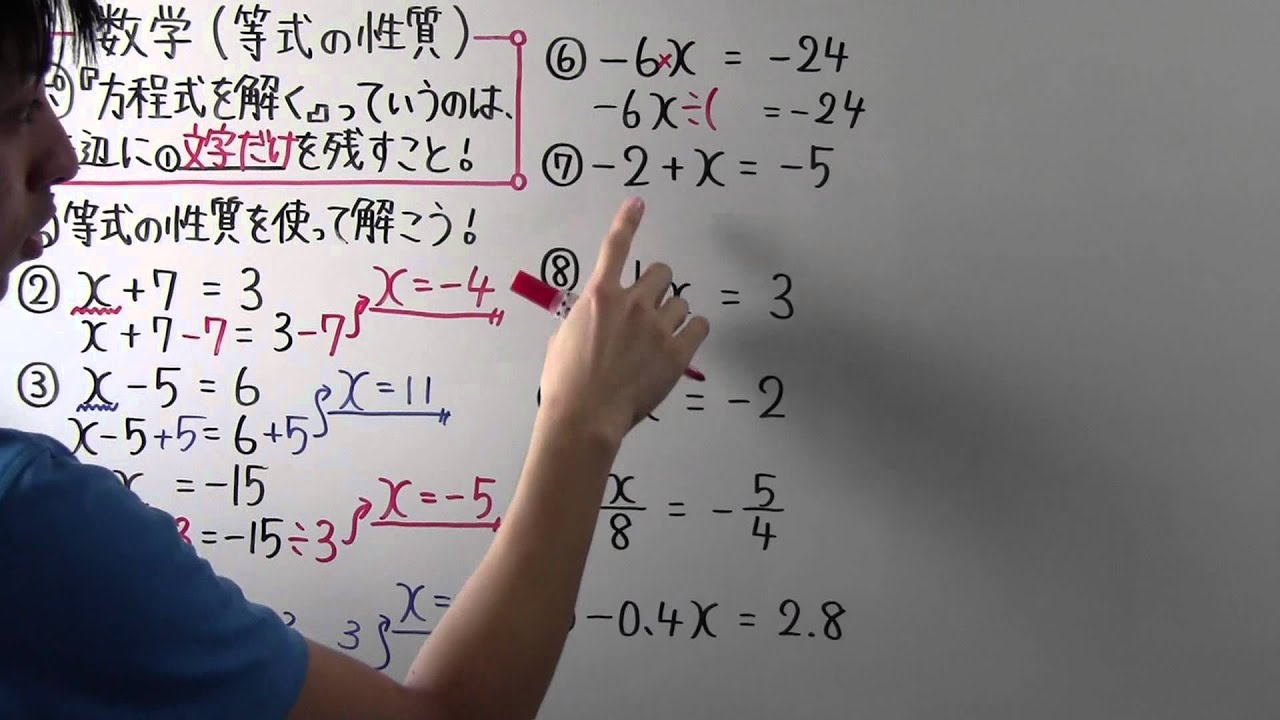 数学(等式の性質)
『方程式を解く』っていうのは、
辺に①文字だけを残すこと!
等式の性質を使って解こう!
② x+7=3
x+7-7=3-7
x=-4
③ x-5=6
x-5+5=6+5
x=11
x=-15
3=-15÷3
x=-5
3
x=
⑥ -6×x=-24
-6x÷( =-24
⑦ -2+x=-5
⑧ x=3
=-2
x/8=-5/4
-0.4x=2.8